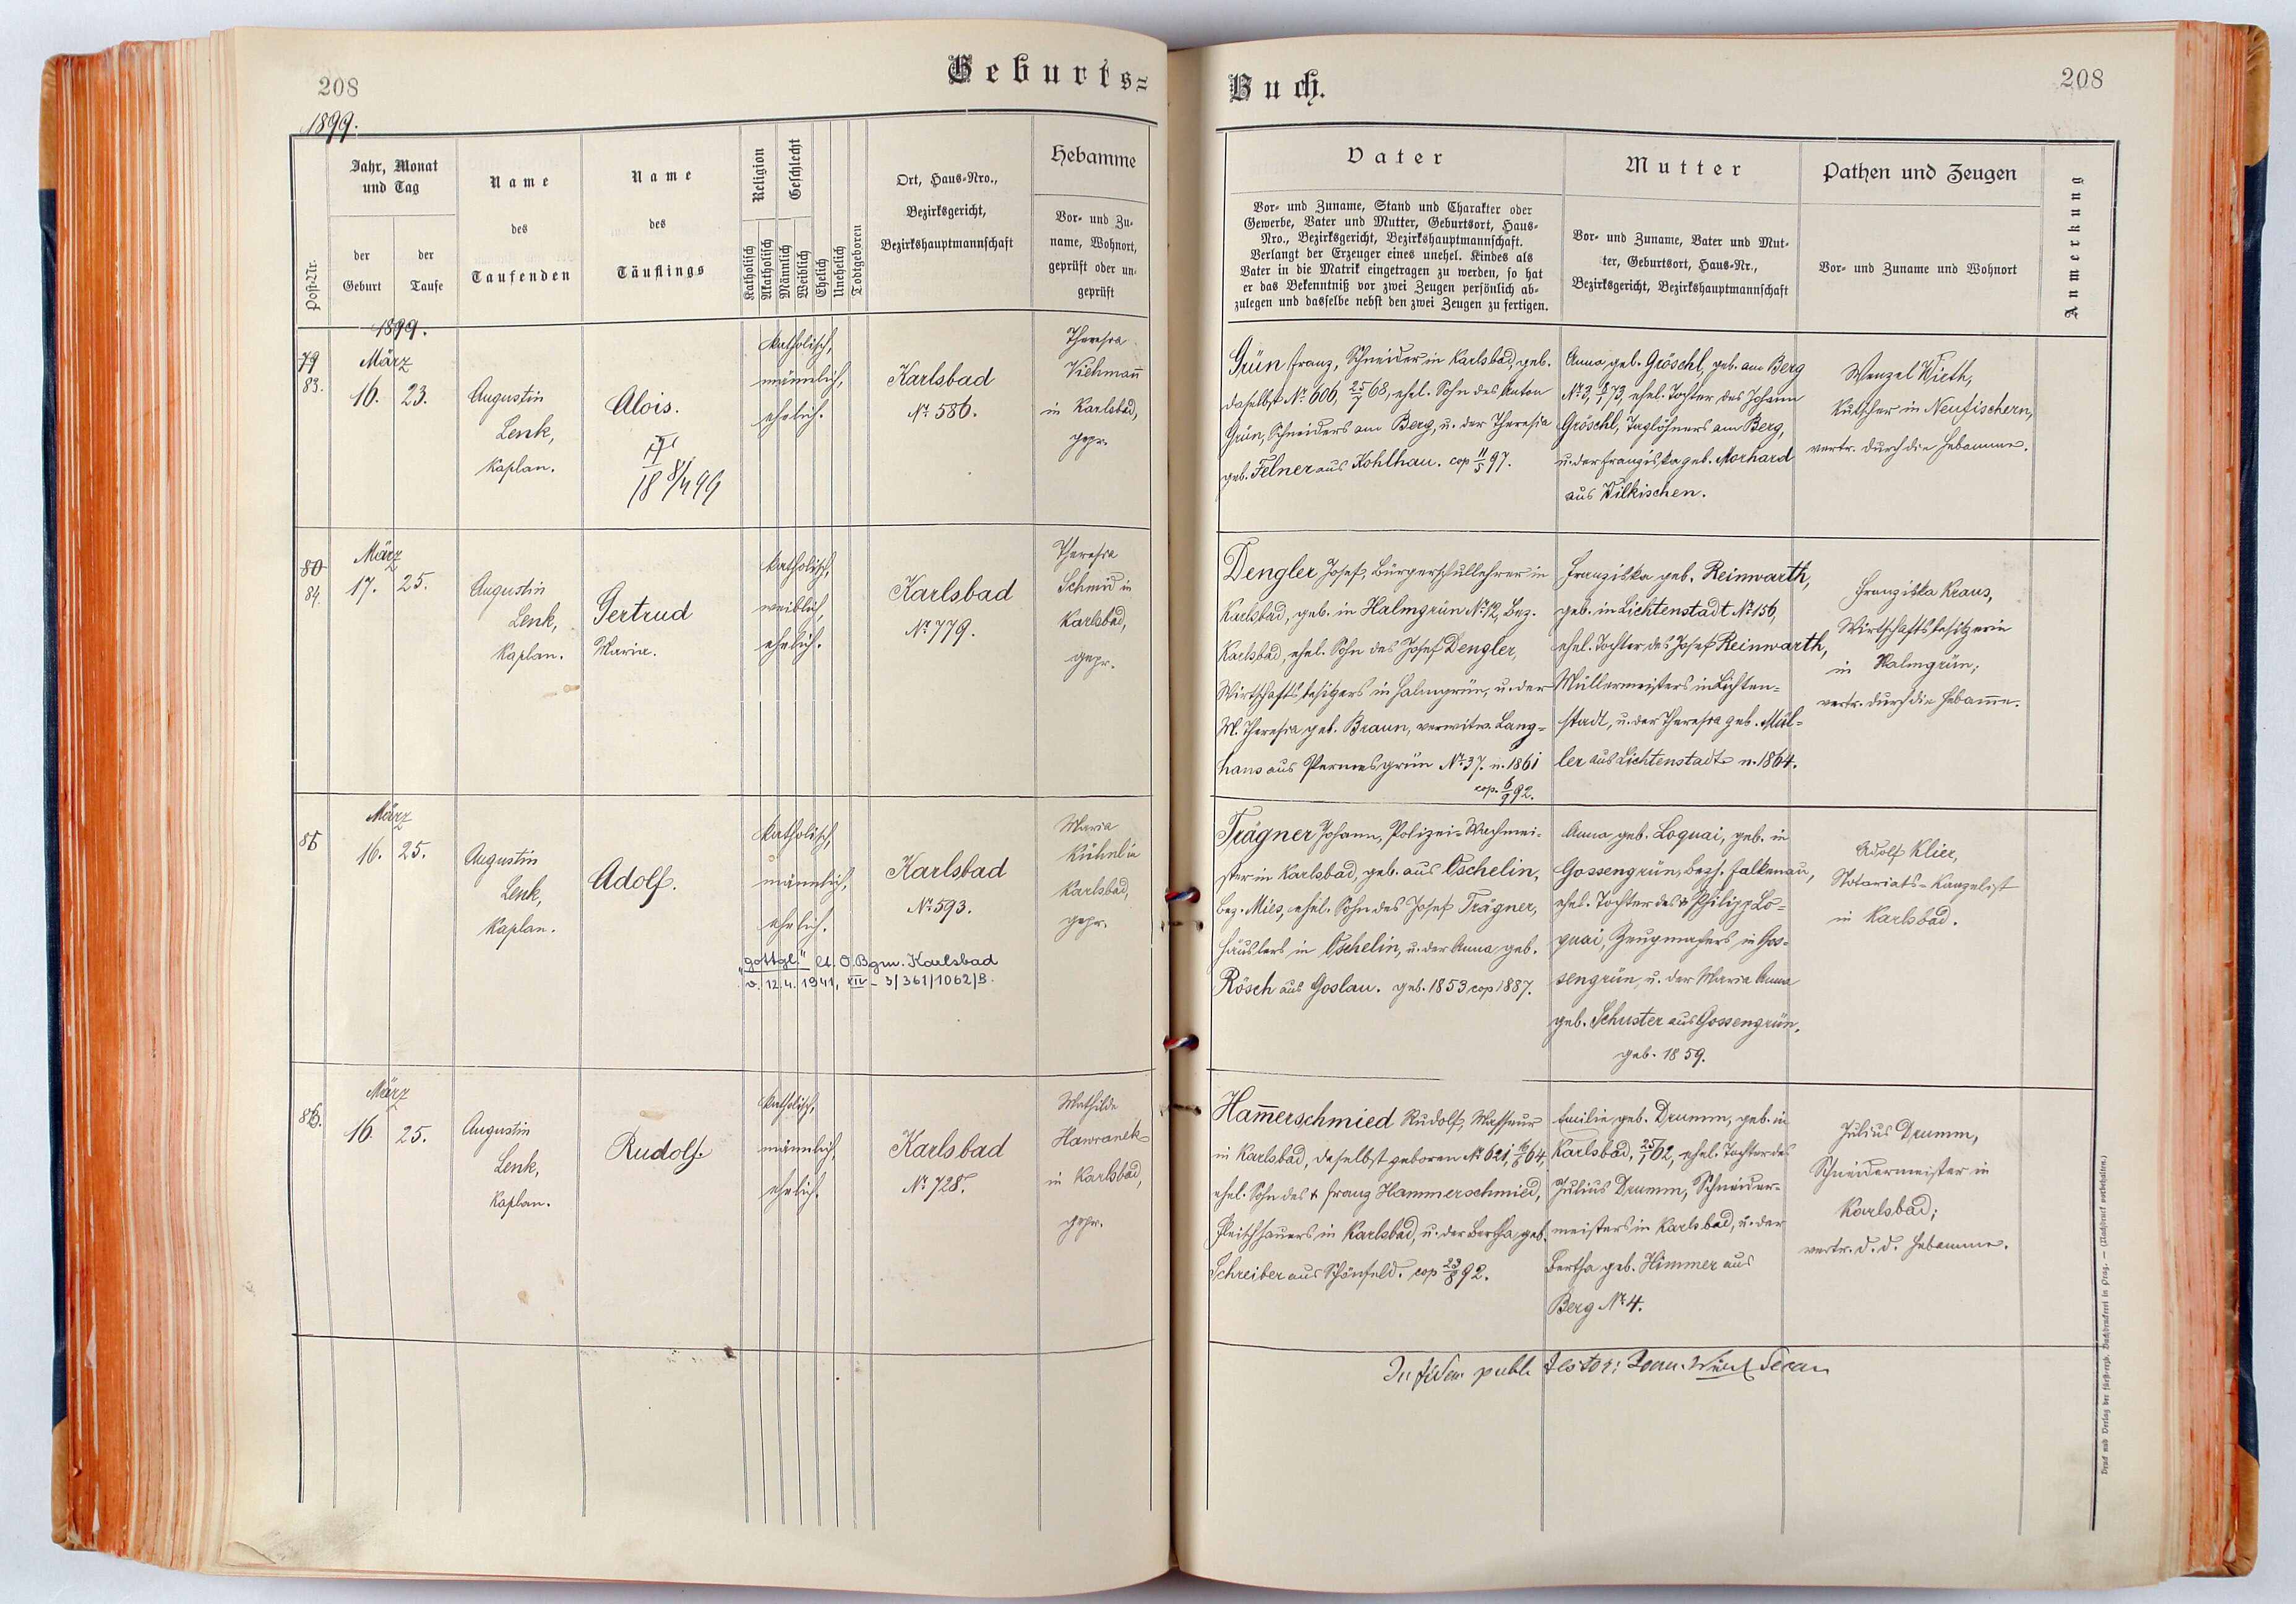 208
Geburts-
1899.
Post-Nr.
Jahr, Monat
und Tag
der
Geburt
der
Taufe
Name
des
Taufenden
Name
des
Täuflings
Religion
Geschlecht
Katholisch
Akatholisch
Männlich
Weiblich
Ehelich
Unehelich
Todtgeboren
Ort, Haus-Nro.,
Bezirksgericht,
Bezirkshauptmannschaft
Hebamme
Vor- und Zu-
name, Wohnort,
geprüft oder un-
geprüft
1899.
79
83.
März
16. 23.
Augustin
Lenk,
Kaplan.
Alois.
18 8/4 99
katholisch,
männlich,
ehelich.
Karlsbad
No. 586.
Theresia
Viehmañ
in Karlsbad,
gepr.
80
84.
März
17. 25.
Augustin
Lenk,
Kaplan.
Gertrud
Maria.
katholisch,
weiblich,
ehelich.
Karlsbad
No. 779.
Theresia
Schmid in
Karlsbad,
gepr.
85
März
16. 25.
Augustin
Lenk,
Kaplan.
Adolf.
katholisch,
männlich,
ehelich.
"gottgl." lt. O.Bgm. Karlsbad
v. 12.4.1941, XIV - 3/361/1062/B.
Karlsbad
No. 593.
Maria
Kühnl in
Karlsbad,
gepr.
86.
März
16. 25.
Augustin
Lenk,
Kaplan.
Rudolf.
katholisch,
männlich,
ehelich.
Karlsbad
No. 728.
Mathilde
Hawranek
in Karlsbad,
gepr.
Buch.
208
Vater
Vor- und Zuname, Stand und Charakter oder
Gewerbe, Vater und Mutter, Geburtsort, Haus-
Nro., Bezirksgericht, Bezirkshauptmannschaft.
Verlangt der Erzeuger eines unehel. Kindes als
Vater in die Matrik eingetragen zu werden, so hat
er das Bekenntniß vor zwei Zeugen persönlich ab-
zulegen und dasselbe nebst den zwei Zeugen zu fertigen.
Mutter
Vor- und Zuname, Vater und Mut-
ter, Geburtsort, Haus-Nr.,
Bezirksgericht, Bezirkshauptmannschaft
Pathen und Zeugen
Vor- und Zuname und Wohnort
Anmerkung
Grün Franz, Schneider in Karlsbad, geb.
daselbst No. 606, 25/7 68, ehel. Sohn des Anton
Grün, Schneiders am Berg, u. der Theresia
geb. Felner aus Kohlhau. cop 11/5 97.
Anna geb. Gröschl, geb. am Berg
No. 3, 73, ehel. Tochter des Johann
Gröschl, Taglöhners am Berg,
u. der Franziska geb. Morhard
aus Wilkischen.
Wenzel Wieth,
Kutscher in Neufischern,
vertr. durch die Hebamme.
Dengler Josef, Bürgerschullehrer in
Karlsbad, geb. in Halmgrün No. 12, Bez.
Karlsbad, ehel. Sohn des Josef Dengler,
Wirtschaftsbesitzers in Halmgrün, u. der
M. Theresia geb. Braun, verwitw. Lang-
hans aus Permesgrün No. 37. n. 1861
cop. 6/9 92.
Franziska geb. Reinwarth,
geb. in Lichtenstadt No. 156,
ehel. Tochter des Josef Reinwarth,
Müllermeisters in Lichten-
stadt, u. der Theresia geb. Mül-
ler aus Lichtenstadt. n. 1864.
Franziska Kraus,
Wirtschaftsbesitzerin
in Halmgrün;
vertr. durch die Hebam̄e.
Trägner Johann, Polizei-Wachmei-
ster in Karlsbad, geb. aus Oschelin,
Bez. Mies, ehel. Sohn des Josef Trägner,
Häuslers in Oschelin, u. der Anna geb.
Rösch aus Goslau. geb. 1853 cop 1887.
Anna geb. Loquai, geb. in
Gossengrün, Bezh. Falkenau,
ehel. Tochter des † Philipp Lo-
quai, Zeugmachers in Gos-
sengrün, u. der Maria Anna
geb. Schuster aus Gossengrün.
geb. 1859.
Adolf Klier,
Notariats-Kanzelist
in Karlsbad.
Ham̄erschmied Rudolf, Masseur
in Karlsbad, daselbst geboren No. 621, 64,
ehel. Sohn des † Franz Hammerschmied,
Fleischhauers in Karlsbad, u. der Bertha geb.
Schreiber aus Schönfeld. cop 23/8 92.
Emilie geb. Drumm, geb. in
Karlsbad, 25/1 62, ehel. Tochter des
Julius Drumm, Schneider-
meisters in Karlsbad, u. der
Bertha geb. Himmer aus
Berg No. 4.
Julius Drumm,
Schneidermeister in
Karlsbad;
vertr. d. d. Hebamme.
In fidem publ. testor:
Druck und Verlag der fürst-erzb. Buchdruckerei in Prag. — (Nachdruck vorbehalten.)